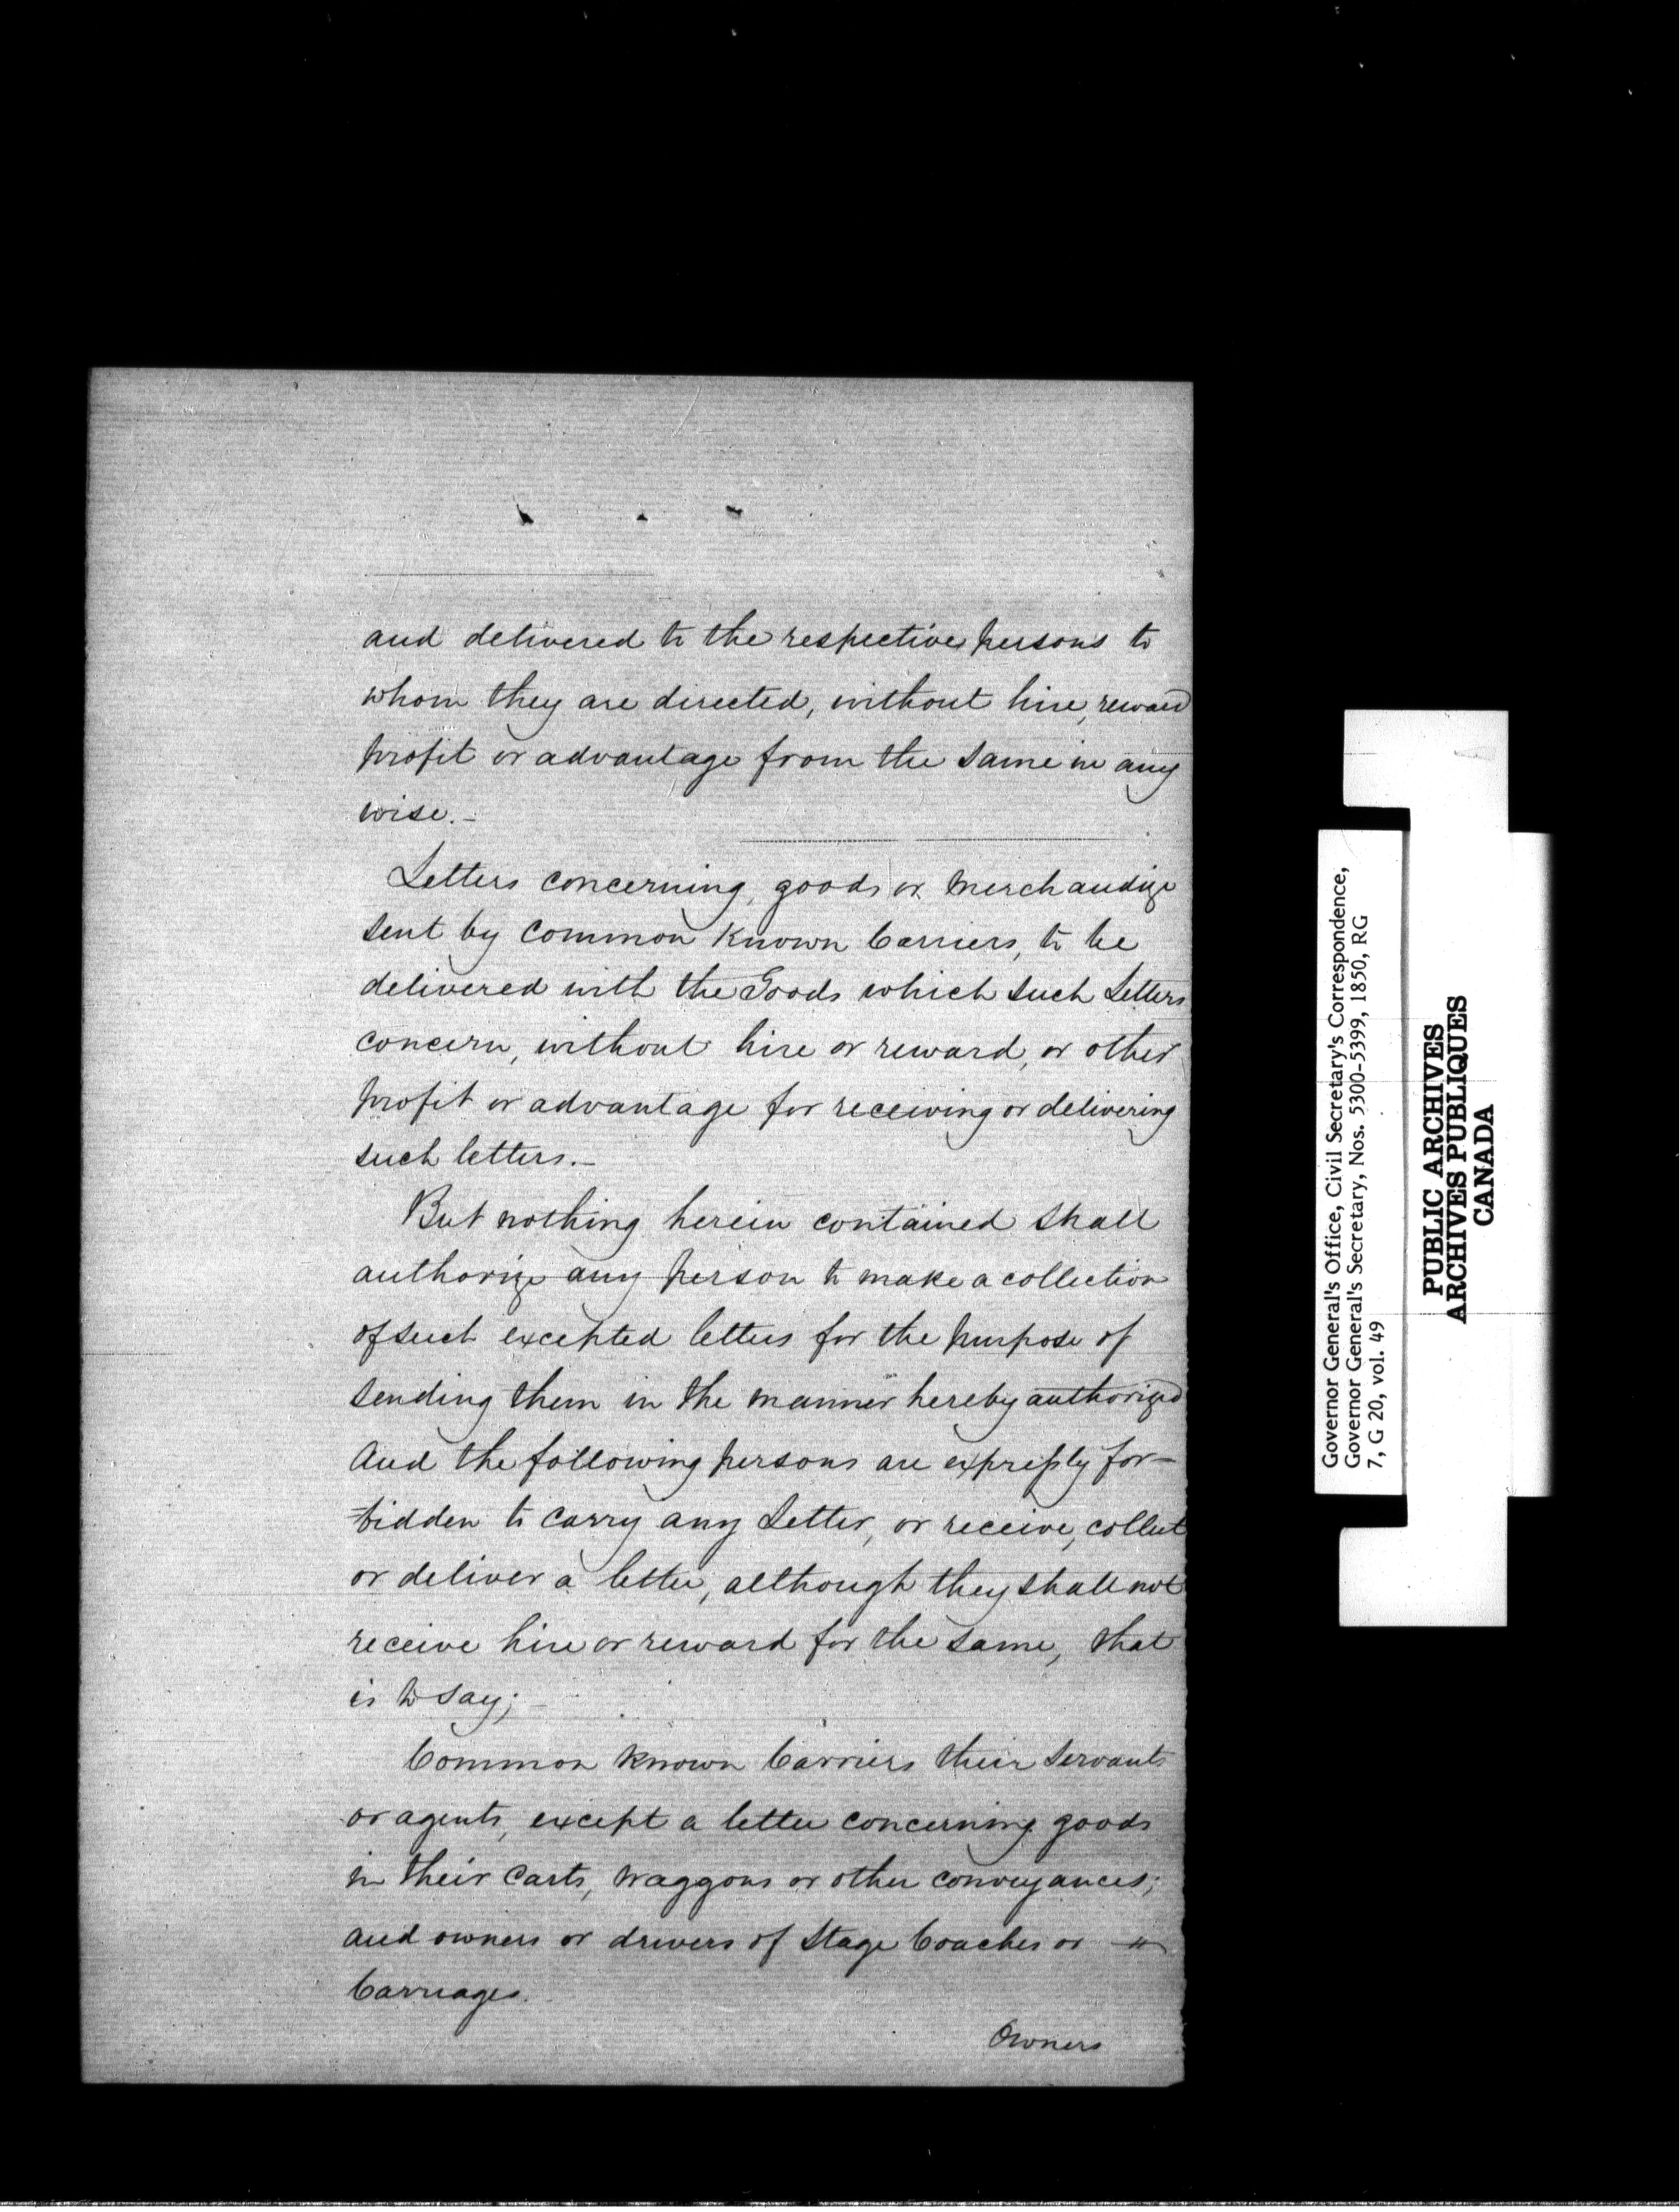 and delivered to the respective persons to
whom they are directed, without hire, reward
profit or advantage from the same in any
wise.-
Letters concerning goods or Merchandize
sent by common known Carriers, to be
delivered with the Goods which such Letters
concern, without hire or reward, or other
profit or advantage for receiving or delivering
such letters.-
But nothing herein contained shall
authorize any person to make a collection
of such excepted letters for the purpose of
sending them in the manner hereby authorized
And the following persons are expressly for-
bidden to carry any Letter, or receive, collect
or deliver a letter, although they shall not
receive hire or reward for the same, that
is to say;-
Common known Carriers their servants
or agents, except a letter concerning goods
in their Carts, Waggons or other conveyances;
and owners or drivers of Stage Coaches or
Carriages.
Owners
Governor General's Office, Civil Secretary's Correspondence,
Governor General's Secretary, Nos. 5300-5399, 1850, RG
7, G 20, vol. 49
PUBLIC ARCHIVES
ARCHIVES PUBLIQUES
CANADA